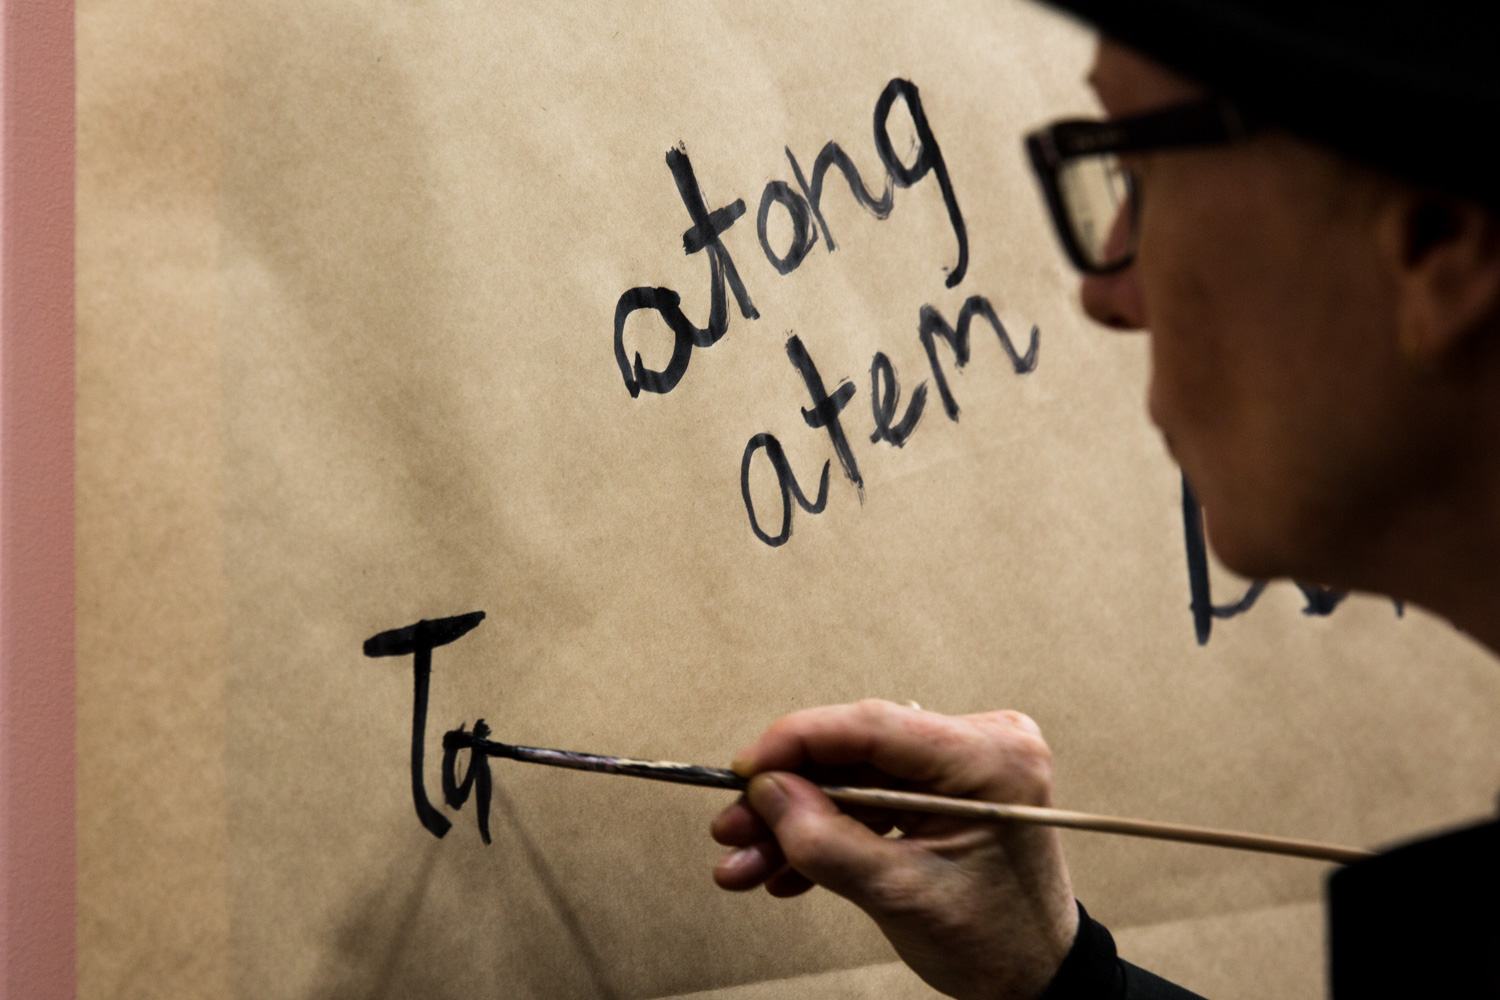 atong
atem
Ta